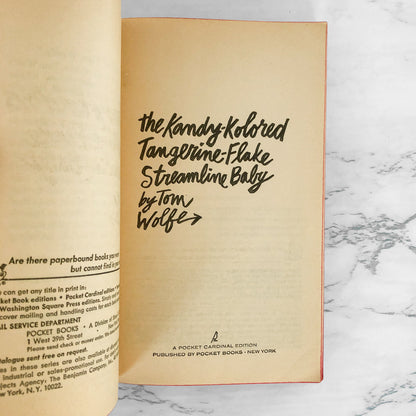 Are there paperbound books you
but cannot find in
can get any title in print in:
Book editions • Pocket Cardinal editions
Washington Square Press editions. Simply
cover mailing and handling costs for each book
SERVICE DEPARTMENT
POCKET BOOKS • A Division of
1 West 39th Street • New
Please send check or money order.
catalogue sent free on request.
in these series are also available
industrial or sales-promotional
Agency. The Benjamin Company, Inc.
N.Y. 10022.
the Kandy-Kolored
Tangerine-Flake
Streamline Baby
by Tom
Wolfe
A POCKET CARDINAL EDITION
PUBLISHED BY POCKET BOOKS • NEW YORK